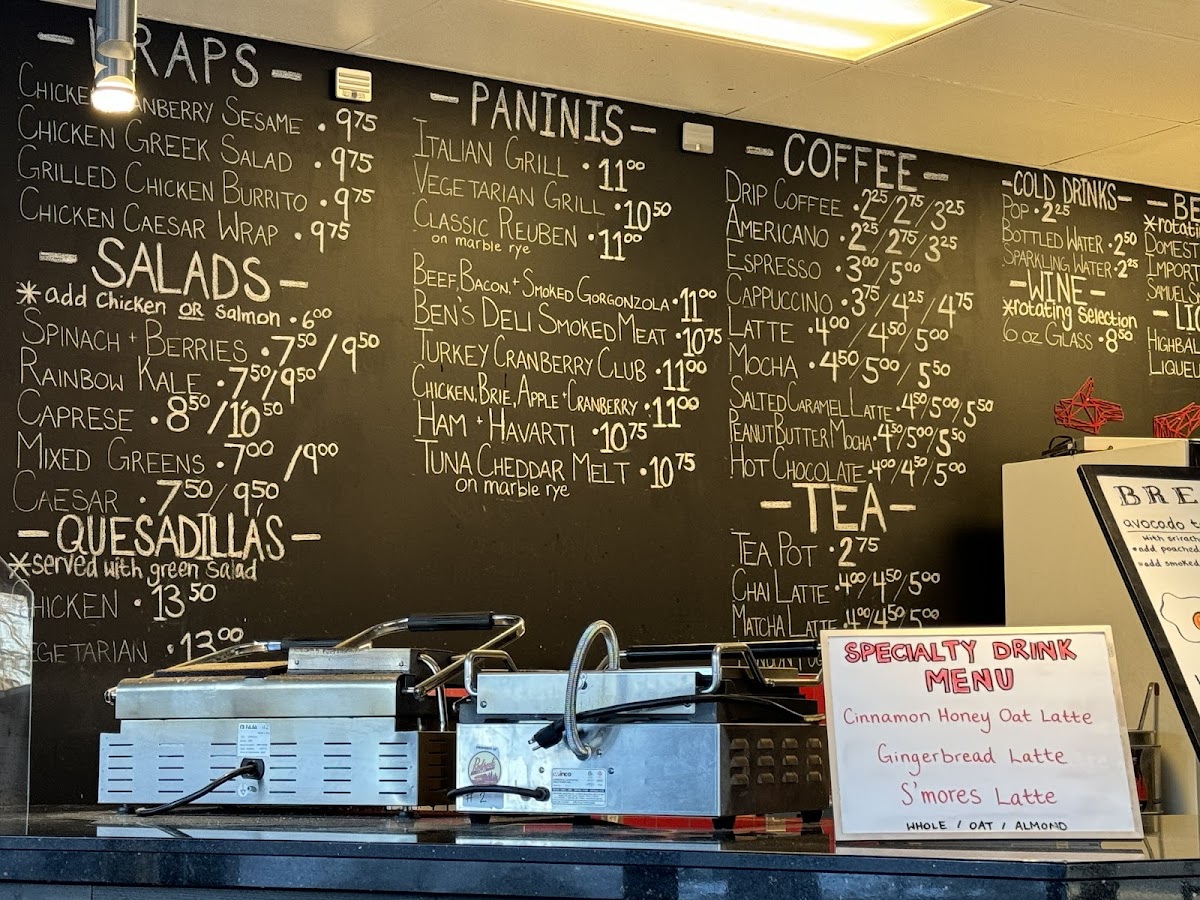 - WRAPS -
CHICKEN CRANBERRY SESAME . 975
CHICKEN GREEK SALAD . 975
GRILLED CHICKEN BURRITO . 975
CHICKEN CAESAR WRAP . 975
- SALADS -
*add chicken OR salmon . 600
SPINACH + BERRIES . 750/950
RAINBOW KALE . 750/950
CAPRESE . 850/1050
MIXED GREENS . 700/900
CAESAR . 750/950
- QUESADILLAS -
*served with green salad
CHICKEN . 1350
VEGETARIAN . 1300
- PANINIS -
ITALIAN GRILL . 1100
VEGETARIAN GRILL . 1050
CLASSIC REUBEN . 1100
on marble rye
BEEF, BACON, + SMOKED GORGONZOLA . 1100
BEN'S DELI SMOKED MEAT . 1075
TURKEY CRANBERRY CLUB . 1100
CHICKEN, BRIE, APPLE + CRANBERRY . 1100
HAM + HAVARTI . 1075
TUNA CHEDDAR MELT . 1075
on marble rye
- COFFEE -
DRIP COFFEE . 225/275/325
AMERICANO . 225/275/325
ESPRESSO . 300/500
CAPPUCCINO . 375/425/475
LATTE . 400/450/500
MOCHA . 450/500/550
SALTED CARAMEL LATTE . 450/500/550
PEANUT BUTTER MOCHA . 450/500/550
HOT CHOCOLATE . 400/450/500
- TEA -
TEA POT . 275
CHAI LATTE . 400/450/500
MATCHA LATTE . 400/450/500
- COLD DRINKS -
POP . 225
BOTTLED WATER . 250
SPARKLING WATER . 225
- WINE -
*rotating selection
6 OZ GLASS . 850
- BE
*rotati
DOMEST
IMPORT
SAMUEL S
- LIQ
HIGHBAL
LIQUEU
BRE
avocado t
with srirach
• add poached
• add smoked
SPECIALTY DRINK
MENU
Cinnamon Honey Oat Latte
Gingerbread Latte
S'mores Latte
WHOLE / OAT / ALMOND
# 2
winco